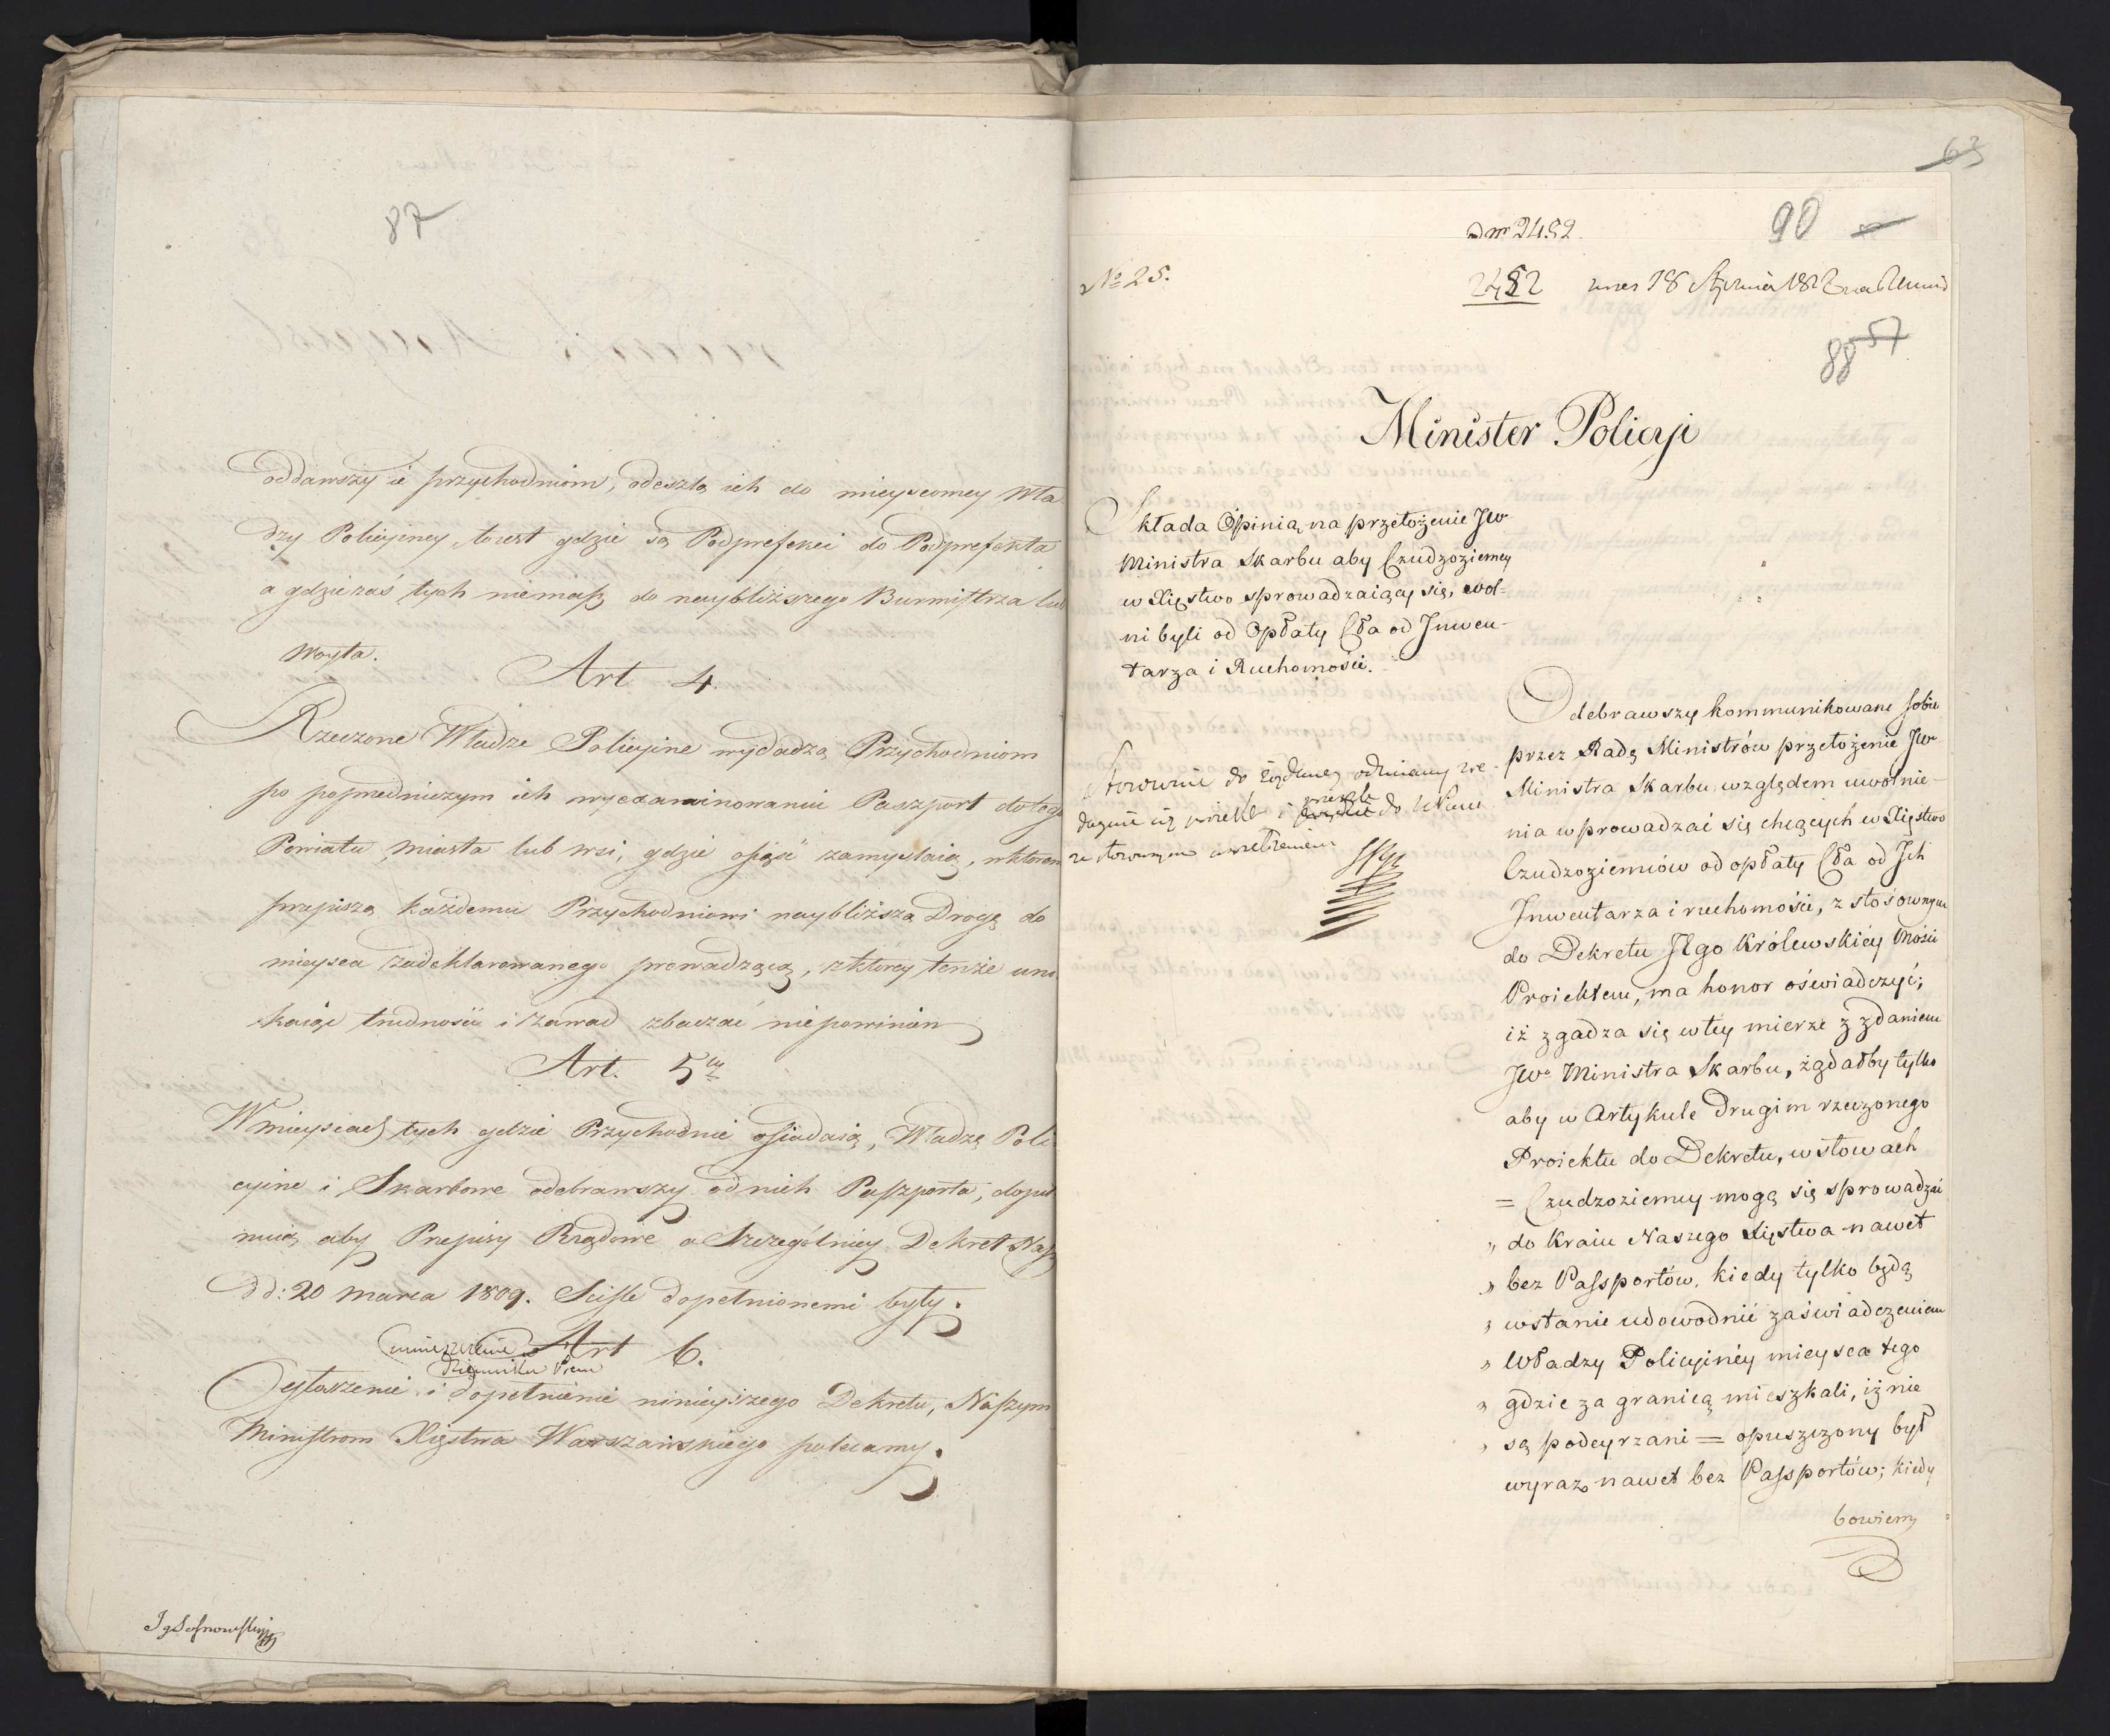 87
oddawszy ie przychodniom, odeszlą ich do mieyscowey Wła
dzy Policyiney, to iest gdzie są Podprefekci do Podprefekta
a gdzie zaś tych niemasz do naybliższego Burmistrza lub
Woyta.
Art 4.
Rzeczone Władze Policyine wydadzą Przychodniom
po poprzedniczym ich wyexaminowaniu Paszport do tego
Powiatu, miasta lub wsi, gdzie osięść zamyślaią, w którem
przepiszą każdemu Przychodniowi naybliższą Drogę do
mieysca zadeklarowanego prowadzącą, z którey tenże uni
kaiąc trudności i zawad zbaczać niepowinien
Art. 5ty
W mieyscach tych gdzie Przychodnie osiadaią, Władzę Poli
cyine i Skarbowe odebrawszy od nich Paszporta, dopil
nuią aby Przepisy Rządowe a Szczególniey Dekret Nasz
dd: 20 Marca 1809. Sciśle dopełnionemi były.
Art 6.
umieszczenie w
Dzienniku Praw
Ogłoszenie i dopełnienie ninieyszego Dekretu, Naszym
Ministrom Xięstwa Warszawskiego polecamy.
Ig Sosnowski
63
90
dnr 2482
No 25.
2482 wnes 18 Stycznia 1812
88 57
Minister Policyi
Składa Opinią na przełożenie JW
Ministra Skarbu aby Czudzoziemcy
w Xięstwo sprowadzaiący się, wol-
ni byli od Opłaty Cła od Inwen-
tarza i Ruchomości.
Stosownie do żądaney odmiany
do
ze stosownym
Odebrawszy kommunikowane sobie
przez Radę Ministrów przełożenie JW
Ministra Skarbu względem uwolnie-
nia wprowadzać się chcących w Xięstwo
Czudzoziemców od opłaty Cła od Ich
Inwentarza i ruchomości, z stosownym
do Dekretu JKgo Królewskiéy Mości
Proiektem, ma honor oświadczyć;
iż zgadza się w tey mierze z zdaniem
JWo Ministra Skarbu, żądałby tylko
aby w Artykule drugim rzeczonego
Proiektu do Dekretu, w słowach
= Czudzoziemcy mogą się sprowadzać
„ do Kraiu Naszego Xięstwa nawet
„ bez Passportów, kiedy tylko będą
„ wstanie udowodnić zaświadczeniem
„ Władzy Policyinéy mieysca tego
„ gdzie za granicą mieszkali, iż nie
„ są podeyrzani = opuszczony był
wyraz nawet bez Passportów; kiedy
bowiem